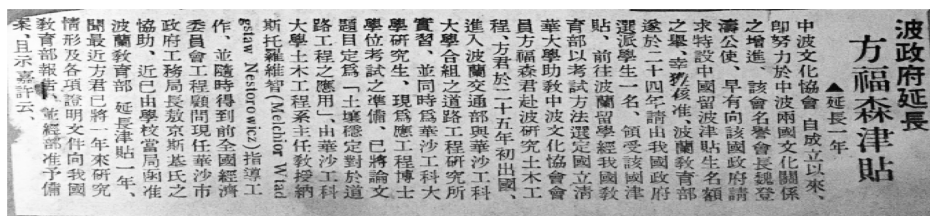 波政府延長
方福森津貼
▲延長一年
中波文化協會自成立以來、
卽努力於中波兩國文化關係
之增進、該會名譽會長魏登
濤公使、早有向該國政府請
求特設中國留波津貼生名額
之舉、幸獲核准、波蘭教育部
遂於二十四年請由我國政府
選派學生一名、領受該國津
貼、前往波蘭留學、經我國教
育部以考試方法選定國立清
華大學助教中波文化協會會
員方福森君赴波研究土木工
程、方君於二十五年初出國、
進入波蘭交通部與華沙工科
大學合組之道路工程研究所
實習、並同時爲華沙工科大
學研究生、現爲應工程博士
學位考試之準備、已將論文
題目定爲「土壤穩定對於道
路工程之應用」、由華沙工科
大學土木工程系主任教授納
斯托羅維智(Melchior Wład
ysław Nestorowicz)指導工
作、並隨時得到前全國經濟
委員會工程顧問現任華沙市
政府工務局長敖京斯基氏之
協助、近已由學校當局函准
波蘭教育部 延長津貼一年、
聞最近方君已將一年來研究
情形及各項證明文件向我國
教育部報告、並經部准予備
案、且示嘉許云、